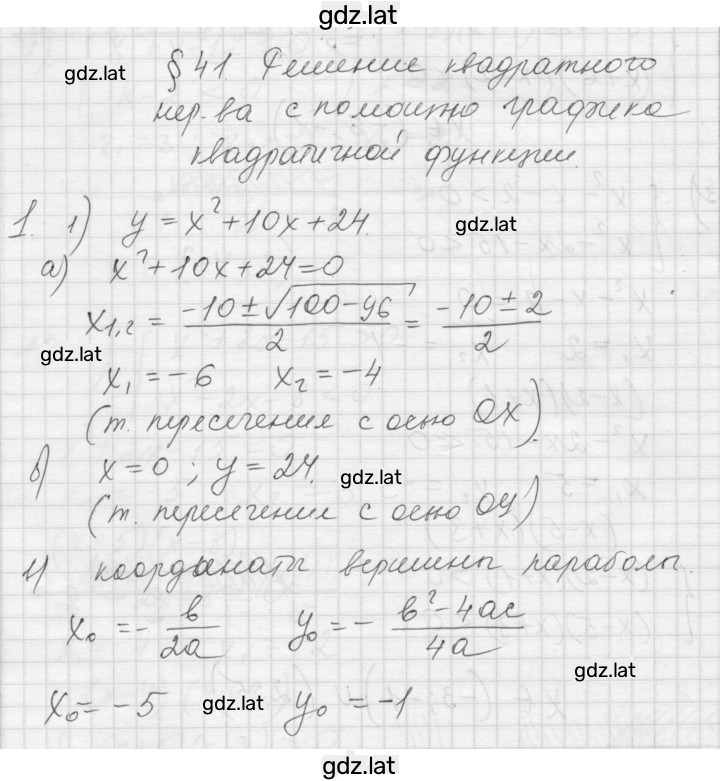 gdz.lat
gdz.lat
§ 41. Решение квадратного
нер-ва с помощью графика
квадратичной функции.
1. 1) y = x² + 10x + 24. gdz.lat
а) x² + 10x + 24 = 0
x₁,₂ = (-10 ± √(100 - 96)) / 2 = (-10 ± 2) / 2
gdz.lat
x₁ = -6 x₂ = -4
(т. пересечения с осью OX).
б) x = 0 ; y = 24. gdz.lat
(т. пересечения с осью OY)
в) координаты вершины параболы.
x₀ = - b / 2a y₀ = - (b² - 4ac) / 4a
gdz.lat
x₀ = -5 gdz.lat y₀ = -1
gdz.lat